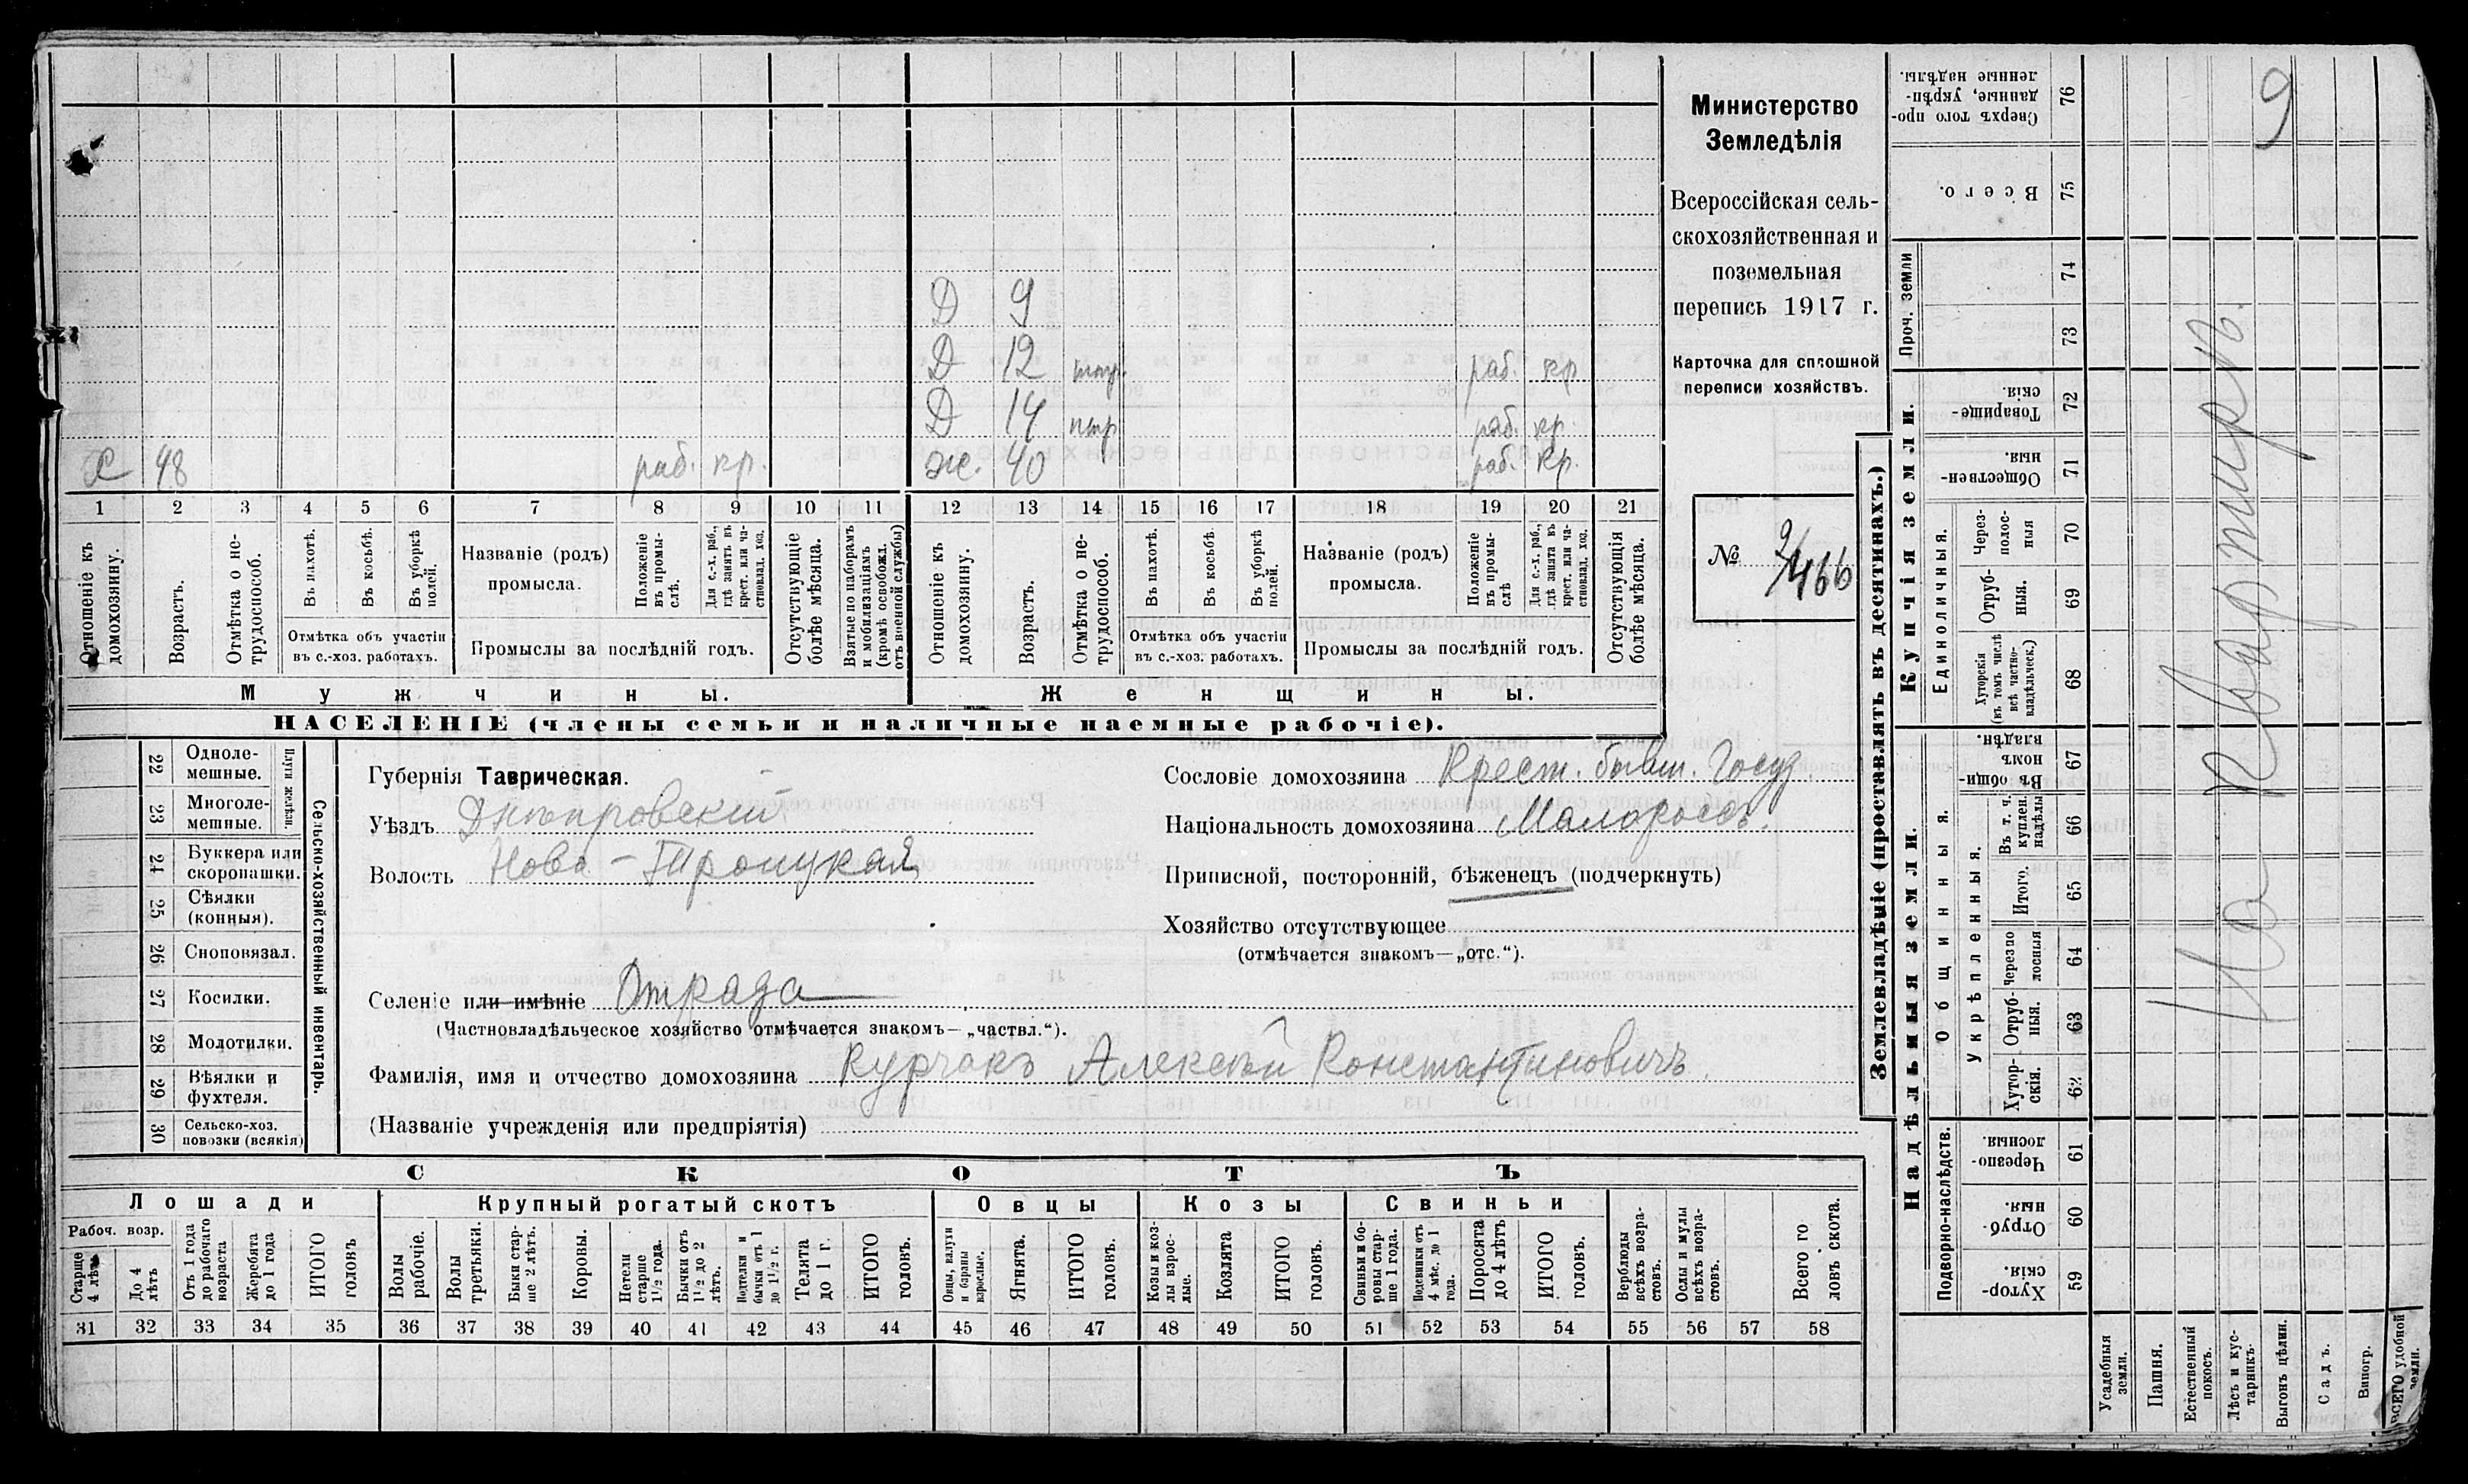 Д 9
Д 12 раб. кр
Д 14 раб. кр.
Х 48 раб. кр. Ж. 40 раб. кр.
1 2 3 4 5 6 7 8 9 10 11 12 13 14 15 16 17 18 19 20 21
Отношеніе къ домохозяину.
Возрастъ.
Отмѣтка о нетрудоспособ.
Въ пахотѣ.
Въ косьбѣ.
Въ уборкѣ полей.
Отмѣтка объ участіи
въ с.-хоз. работахъ.
Названіе (родъ)
промысла.
Положеніе въ промыслѣ.
Для с.-х. раб., гдѣ занятъ въ крест. или частновлад. хоз.
Промыслы за послѣдній годъ.
Отсутствующіе болѣе мѣсяца.
Взятые по наборамъ и мобилизаціямъ (кромѣ освобожд. отъ военной службы)
Отношеніе къ домохозяину.
Возрастъ.
Отмѣтка о нетрудоспособ.
Въ пахотѣ.
Въ косьбѣ.
Въ уборкѣ полей.
Отмѣтка объ участіи
въ с.-хоз. работахъ.
Названіе (родъ)
промысла.
Положеніе въ промыслѣ
Для с.-х. раб., гдѣ занята въ крест. или частновлад. хоз.
Промыслы за послѣдній годъ.
Отсутствующія болѣе мѣсяца.
Мужчины. Женщины.
НАСЕЛЕНІЕ (члены семьи и наличные наемные рабочіе).
Министерство
Земледѣлія
Всероссійская сель-
скохозяйственная и
поземельная
перепись 1917 г.
Карточка для сплошной
переписи хозяйствъ.
№ 9/466
22 Одноле-
мешные.
23 Многоле-
мешные.
Плуги желѣзн.
24 Буккера или
скоропашки.
25 Сѣялки
(конныя).
26 Сноповязал.
27 Косилки.
28 Молотилки.
29 Вѣялки и
фухтеля.
30 Сельско-хоз.
повозки (всякія)
Сельско-хозяйственный инвентарь.
Губернія Таврическая.
Уѣздъ Днѣпровскій
Волость Ново-Троицкая
Сословіе домохозяина Крест. бывш. Госуд.
Національность домохозяина Малороссъ.
Приписной, посторонній, бѣженецъ (подчеркнуть)
Хозяйство отсутствующее
(отмѣчается знакомъ—„отс.“).
Селеніе или имѣніе Отрада
(Частновладѣльческое хозяйство отмѣчается знакомъ—„частвл.“).
Фамилія, имя и отчество домохозяина Курчакъ Алексѣй Константиновичъ.
(Названіе учрежденія или предпріятія)
СКОТЪ
Лошади Крупный рогатый скотъ Овцы Козы Свиньи
Рабоч. возр.
Старше 4 лѣтъ
До 4 лѣтъ
Отъ 1 года до рабочаго возраста
Жеребята до 1 года
ИТОГО головъ
Волы рабочіе.
Волы третьяки.
Быки старше 2 лѣтъ.
Коровы.
Нетели старше 1½ года.
Бычки отъ 1½ до 2 лѣтъ.
Подтелки и бычки отъ 1 до 1½ г.
Телята до 1 г.
ИТОГО головъ.
Овцы, валухи и бараны взрослые.
Ягнята.
ИТОГО головъ.
Козы и козлы взрослые.
Козлята
ИТОГО головъ.
Свиньи и боровы старше 1 года.
Подсвинки отъ 4 мѣс. до 1 года.
Поросята до 4 лѣтъ
ИТОГО головъ.
Верблюды всѣхъ возрастовъ.
Ослы и мулы всѣхъ возрастовъ.
Всего головъ скота.
31 32 33 34 35 36 37 38 39 40 41 42 43 44 45 46 47 48 49 50 51 52 53 54 55 56 57 58
Землевладѣніе (проставлять въ десятинахъ.)
Сверхъ того проданные, укрѣпленные надѣлы. 76
Всего. 75
Проч. земли 74
73
Купчія земли.
Товарищескія. 72
Общественныя. 71
Единоличныя.
Черезполосныя 70
Отрубныя. 69
Хуторскія (въ томъ числѣ всѣ частновладѣльческ.) 68
Надѣльныя земли.
Общинныя.
Въ общинномъ владѣн. 67
Укрѣпленныя.
Въ т. ч. куплен. надѣлы 66
Итого. 65
Черезполосныя 64
Отрубныя. 63
Хуторскія. 62
Подворно-наслѣдств.
Черезполосныя. 61
Отрубныя. 60
Хуторскія. 59
Усадебныя земли.
Пашня.
Естественный покосъ.
Лѣсъ и кустарникъ.
Выгонъ цѣлин.
Садъ.
Виногр.
ВСЕГО удобной земли.
9
На квартирѣ.